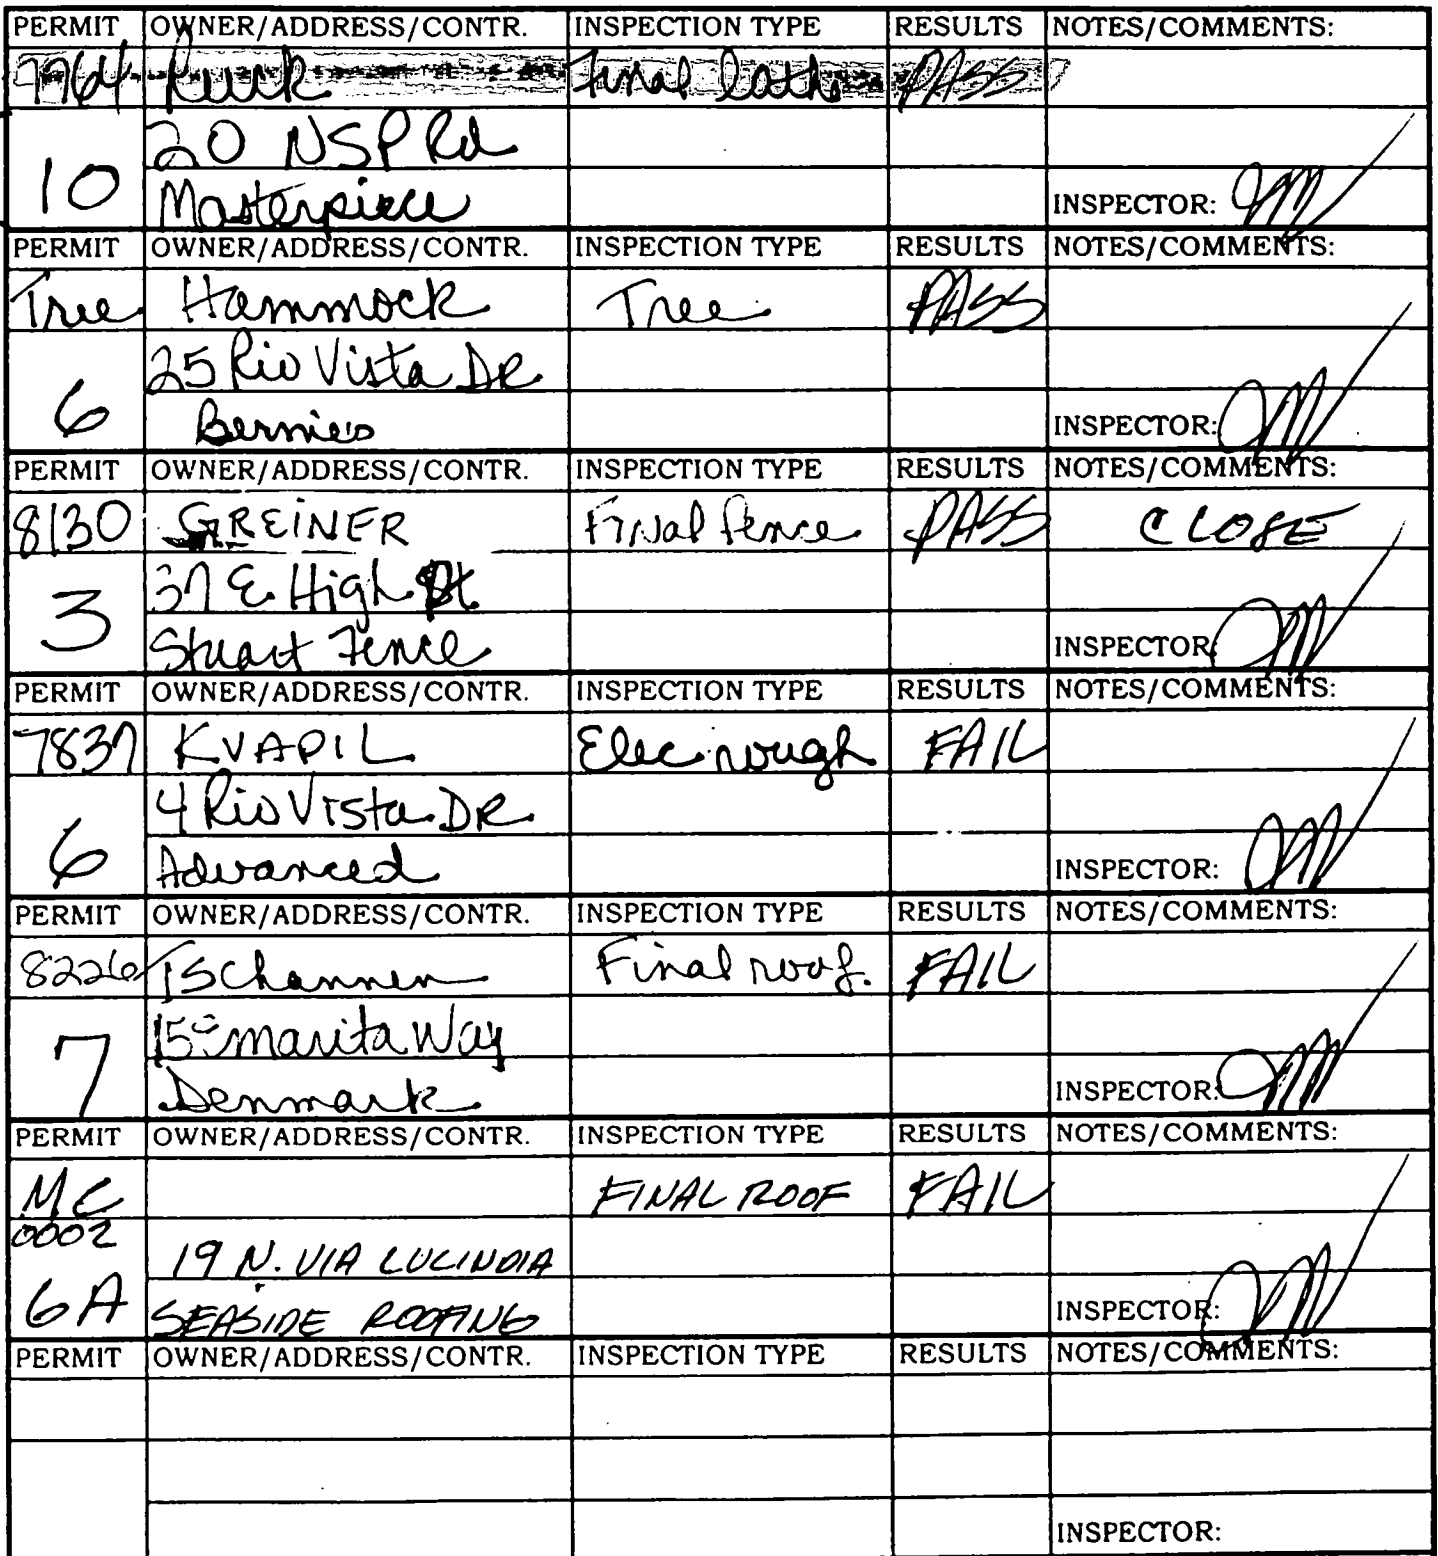 PERMIT OWNER/ADDRESS/CONTR. INSPECTION TYPE RESULTS NOTES/COMMENTS:
7764 Final lath PASS
20 NSP Rd
10
Masterpiece INSPECTOR:
PERMIT OWNER/ADDRESS/CONTR. INSPECTION TYPE RESULTS NOTES/COMMENTS:
Tree Hammock Tree PASS
25 Rio Vista DR
6
Bernies INSPECTOR:
PERMIT OWNER/ADDRESS/CONTR. INSPECTION TYPE RESULTS NOTES/COMMENTS:
8130 GREINER Final fence PASS CLOSE
37 E. High Pt
3
Stuart Fence INSPECTOR:
PERMIT OWNER/ADDRESS/CONTR. INSPECTION TYPE RESULTS NOTES/COMMENTS:
7837 KVAPIL Elec rough FAIL
4 Rio Vista DR
6
Advanced INSPECTOR:
PERMIT OWNER/ADDRESS/CONTR. INSPECTION TYPE RESULTS NOTES/COMMENTS:
8226 TSchannen Final roof. FAIL
Emarita Way
7
Denmark INSPECTOR:
PERMIT OWNER/ADDRESS/CONTR. INSPECTION TYPE RESULTS NOTES/COMMENTS:
MC FINAL ROOF FAIL
0002
19 N. VIA LUCINDIA
6A
SEASIDE ROOFING INSPECTOR:
PERMIT OWNER/ADDRESS/CONTR. INSPECTION TYPE RESULTS NOTES/COMMENTS:
INSPECTOR: